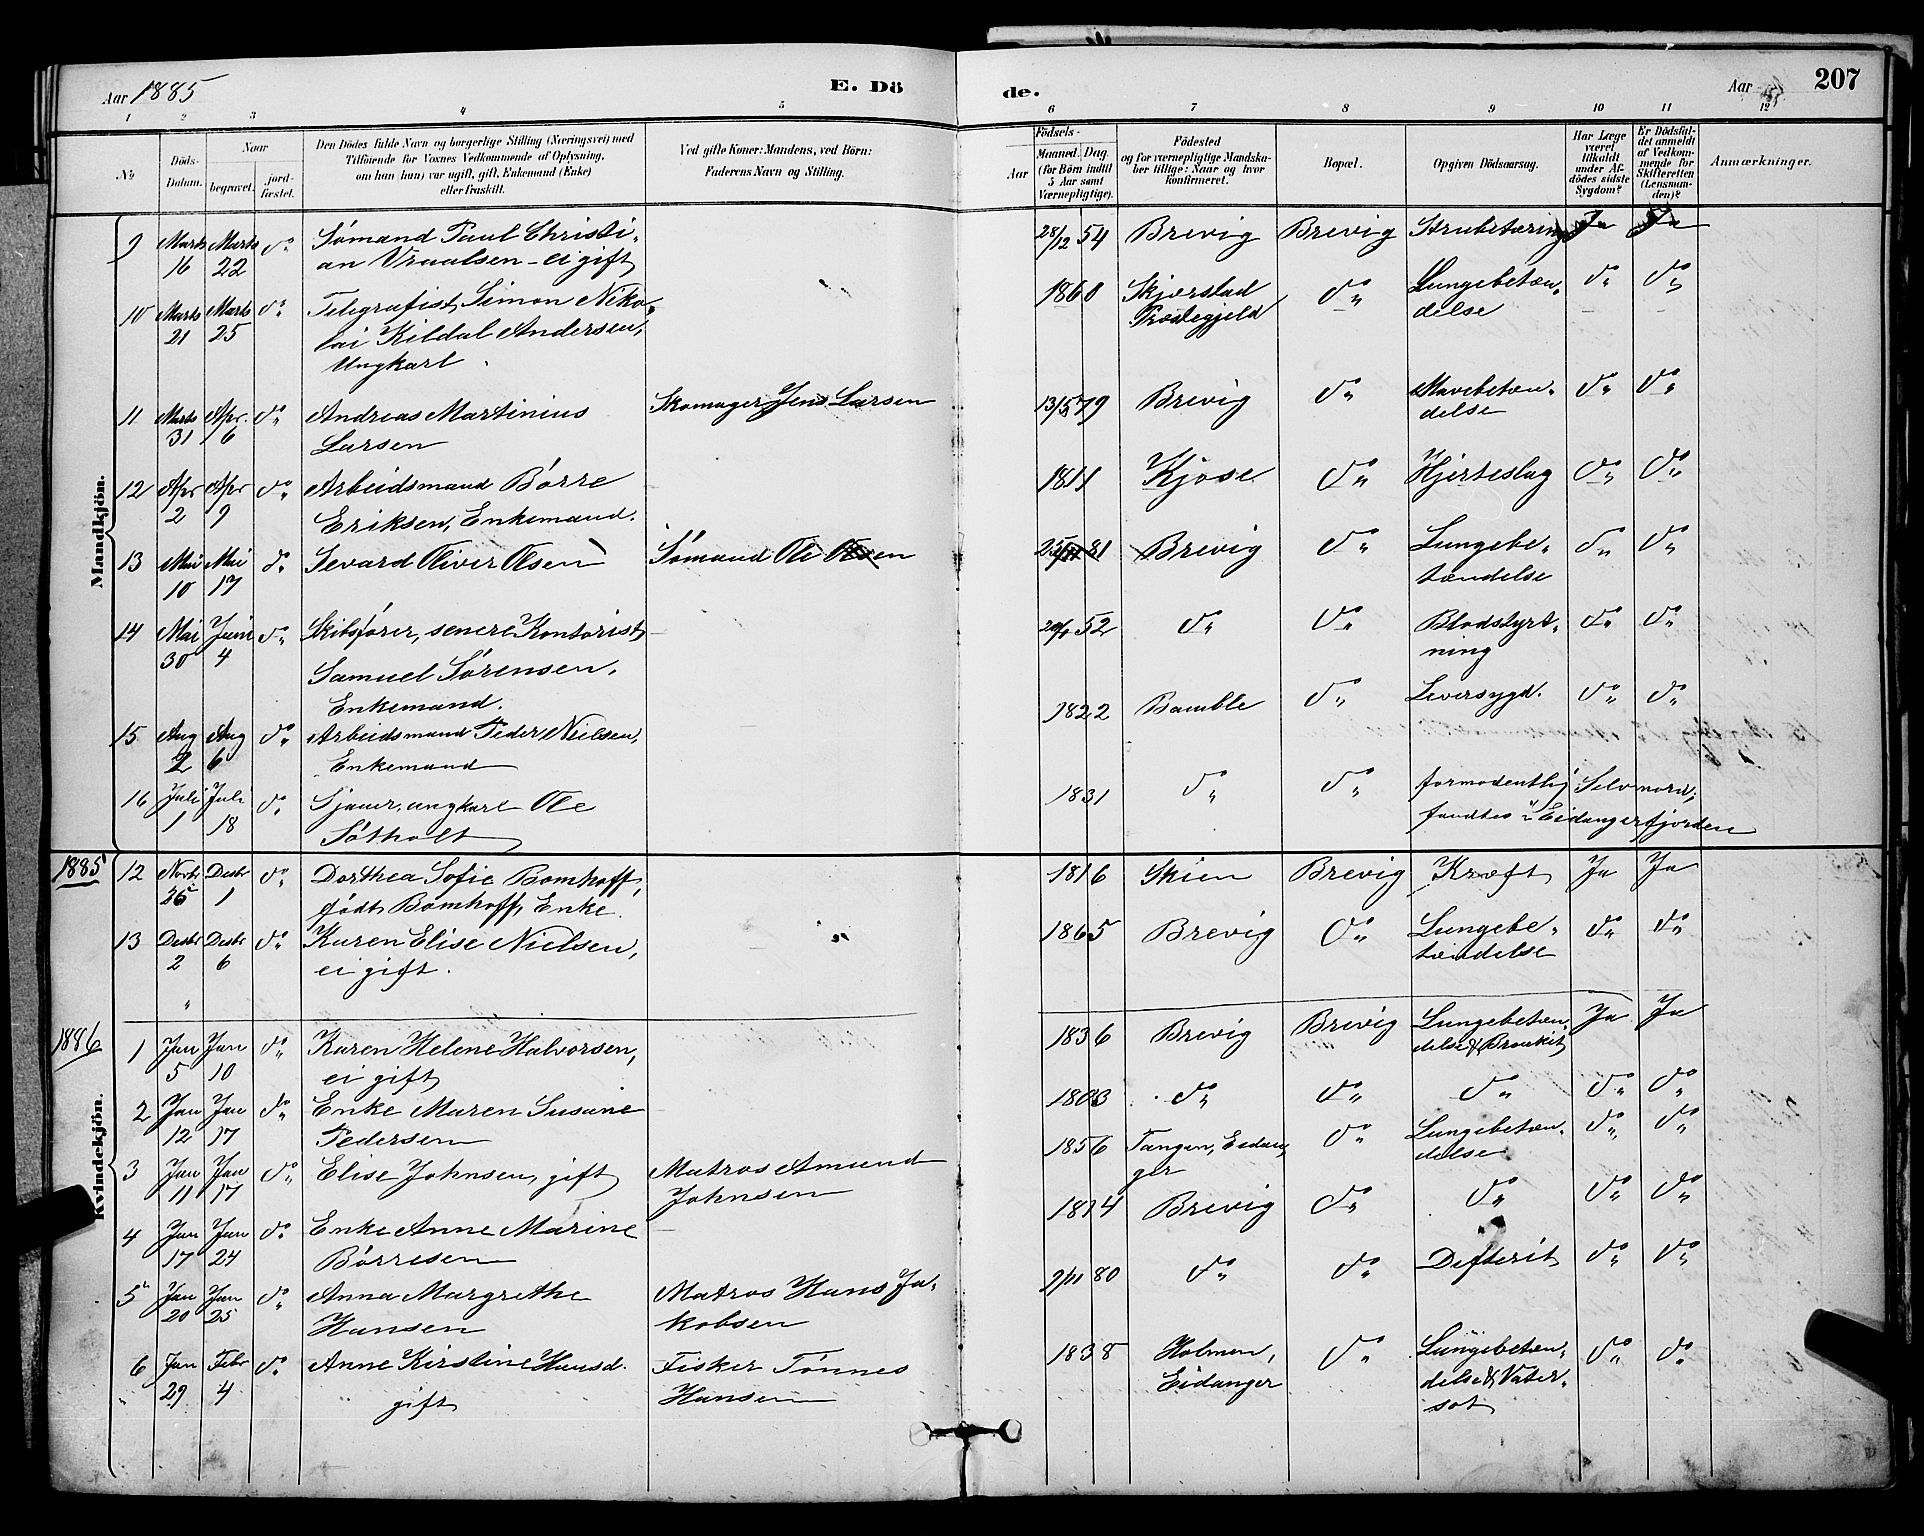 Aar 1885 E. Dö de. Aar 207
1 2 3 4 5 6 7 8 9 10 11 12
№ Döds-Datum. Naar begravet. jordfæstet. Den Dödes fulde Navn og borgerlige Stilling (Næringsvei) med Tilföiende for Voxnes Vedkommende af Oplysning, om han (hun) var ugift, gift, Enkemand (Enke) eller fraskilt. Ved gifte Koner: Mandens, ved Börn: Faderens Navn og Stilling. Födsels- Aar Maaned. Dag. (for Börn indtil 5 Aar samt Værnepligtige). Födested og for værnepligtige Mandskaber tillige: Naar og hvor konfirmeret. Bopæl. Opgiven Dödsaarsag. Har Læge været tilkaldt under Afdödes sidste Sygdom? Er Dödsfaldet anmeldt af Vedkommende for Skifteretten (Lensmanden)? Anmærkninger.
Mandkjön.
9 Marts 16 Marts 22 do Sömand Paul Christi- 28/12 54 Brevig Brevig Strubetæring Ja Ja
an Vraalsen - ei gift
10 Marts 21 Marts 25 do Telegrafist Simon Niko- 1860 Skjerstad Præstegjeld do Lungebetæn-delse do do
lai Kildal Andersen,
Ungkarl
11 Marts 31 Apr. 6 do Andreas Martinius Skomager Jens Larsen 79 Brevig do Mavebetæn-delse do do
Larsen
12 Apr 2 Apr 9 do Arbeidsmand Börre 1811 Kjose do Hjerteslag do do
Eriksen, Enkemand.
13 Mai 10 Mai 17 do Sevard Oliver Olsen Sömand Ole Olsen 81 Brevig do Lungebe-tændelse do do
14 Mai 30 Juni 4 do Skibsförer, senere Kontorist 52 do do Blodstyrt-ning do do
Samuel Sörensen,
Enkemand.
15 Aug 2 Aug 6 do Arbeidsmand Peder Nielsen, 1822 Bamble do Leversygd. do do
Enkemand
16 Juli 1 Juli 18 do Sjauer, ungkarl Ole 1831 do do formodentlig Selvmord,
Sötholt fandtes i Eidangerfjorden
Kvindekjön.
1885 12 Novbr 26 Desbr 1 do Dorthea Sofie Bomhoff, 1816 Skien Brevig Kræft Ja Ja
födt Bomhoff, Enke.
13 Desbr 2 Desbr 6 do Karen Elise Nielsen, 1865 Brevig do Lungebe-tændelse do do
ei gift.
1886 1 Jan 5 Jan 10 do Karen Helene Halvorsen, 1836 Brevig Brevig Lungebetæn-delse & Bronkit Ja Ja
ei gift
2 Jan 12 Jan 17 do Enke Maren Susane 1803 do do do do do
Pedersen
3 Jan 11 Jan 17 do Elise Johnsen, gift Matros Amund Johnsen 1856 Tangen, Eidan-ger do Lungebetæn-delse do do
4 Jan 17 Jan 24 do Enke Anne Marine 1814 Brevig do do do do
Börresen
5 Jan 20 Jan 25 do Anna Margrethe Matros Hans Ja-kobsen 2/11 80 do do Difterit do do
Hansen
6 Jan 29 Febr 4 do Anne Kirstine Hansd. Fisker Tönnes Hansen 1838 Holmen, Eidanger do Lungebetæn-delse & Vater-sot do do
gift